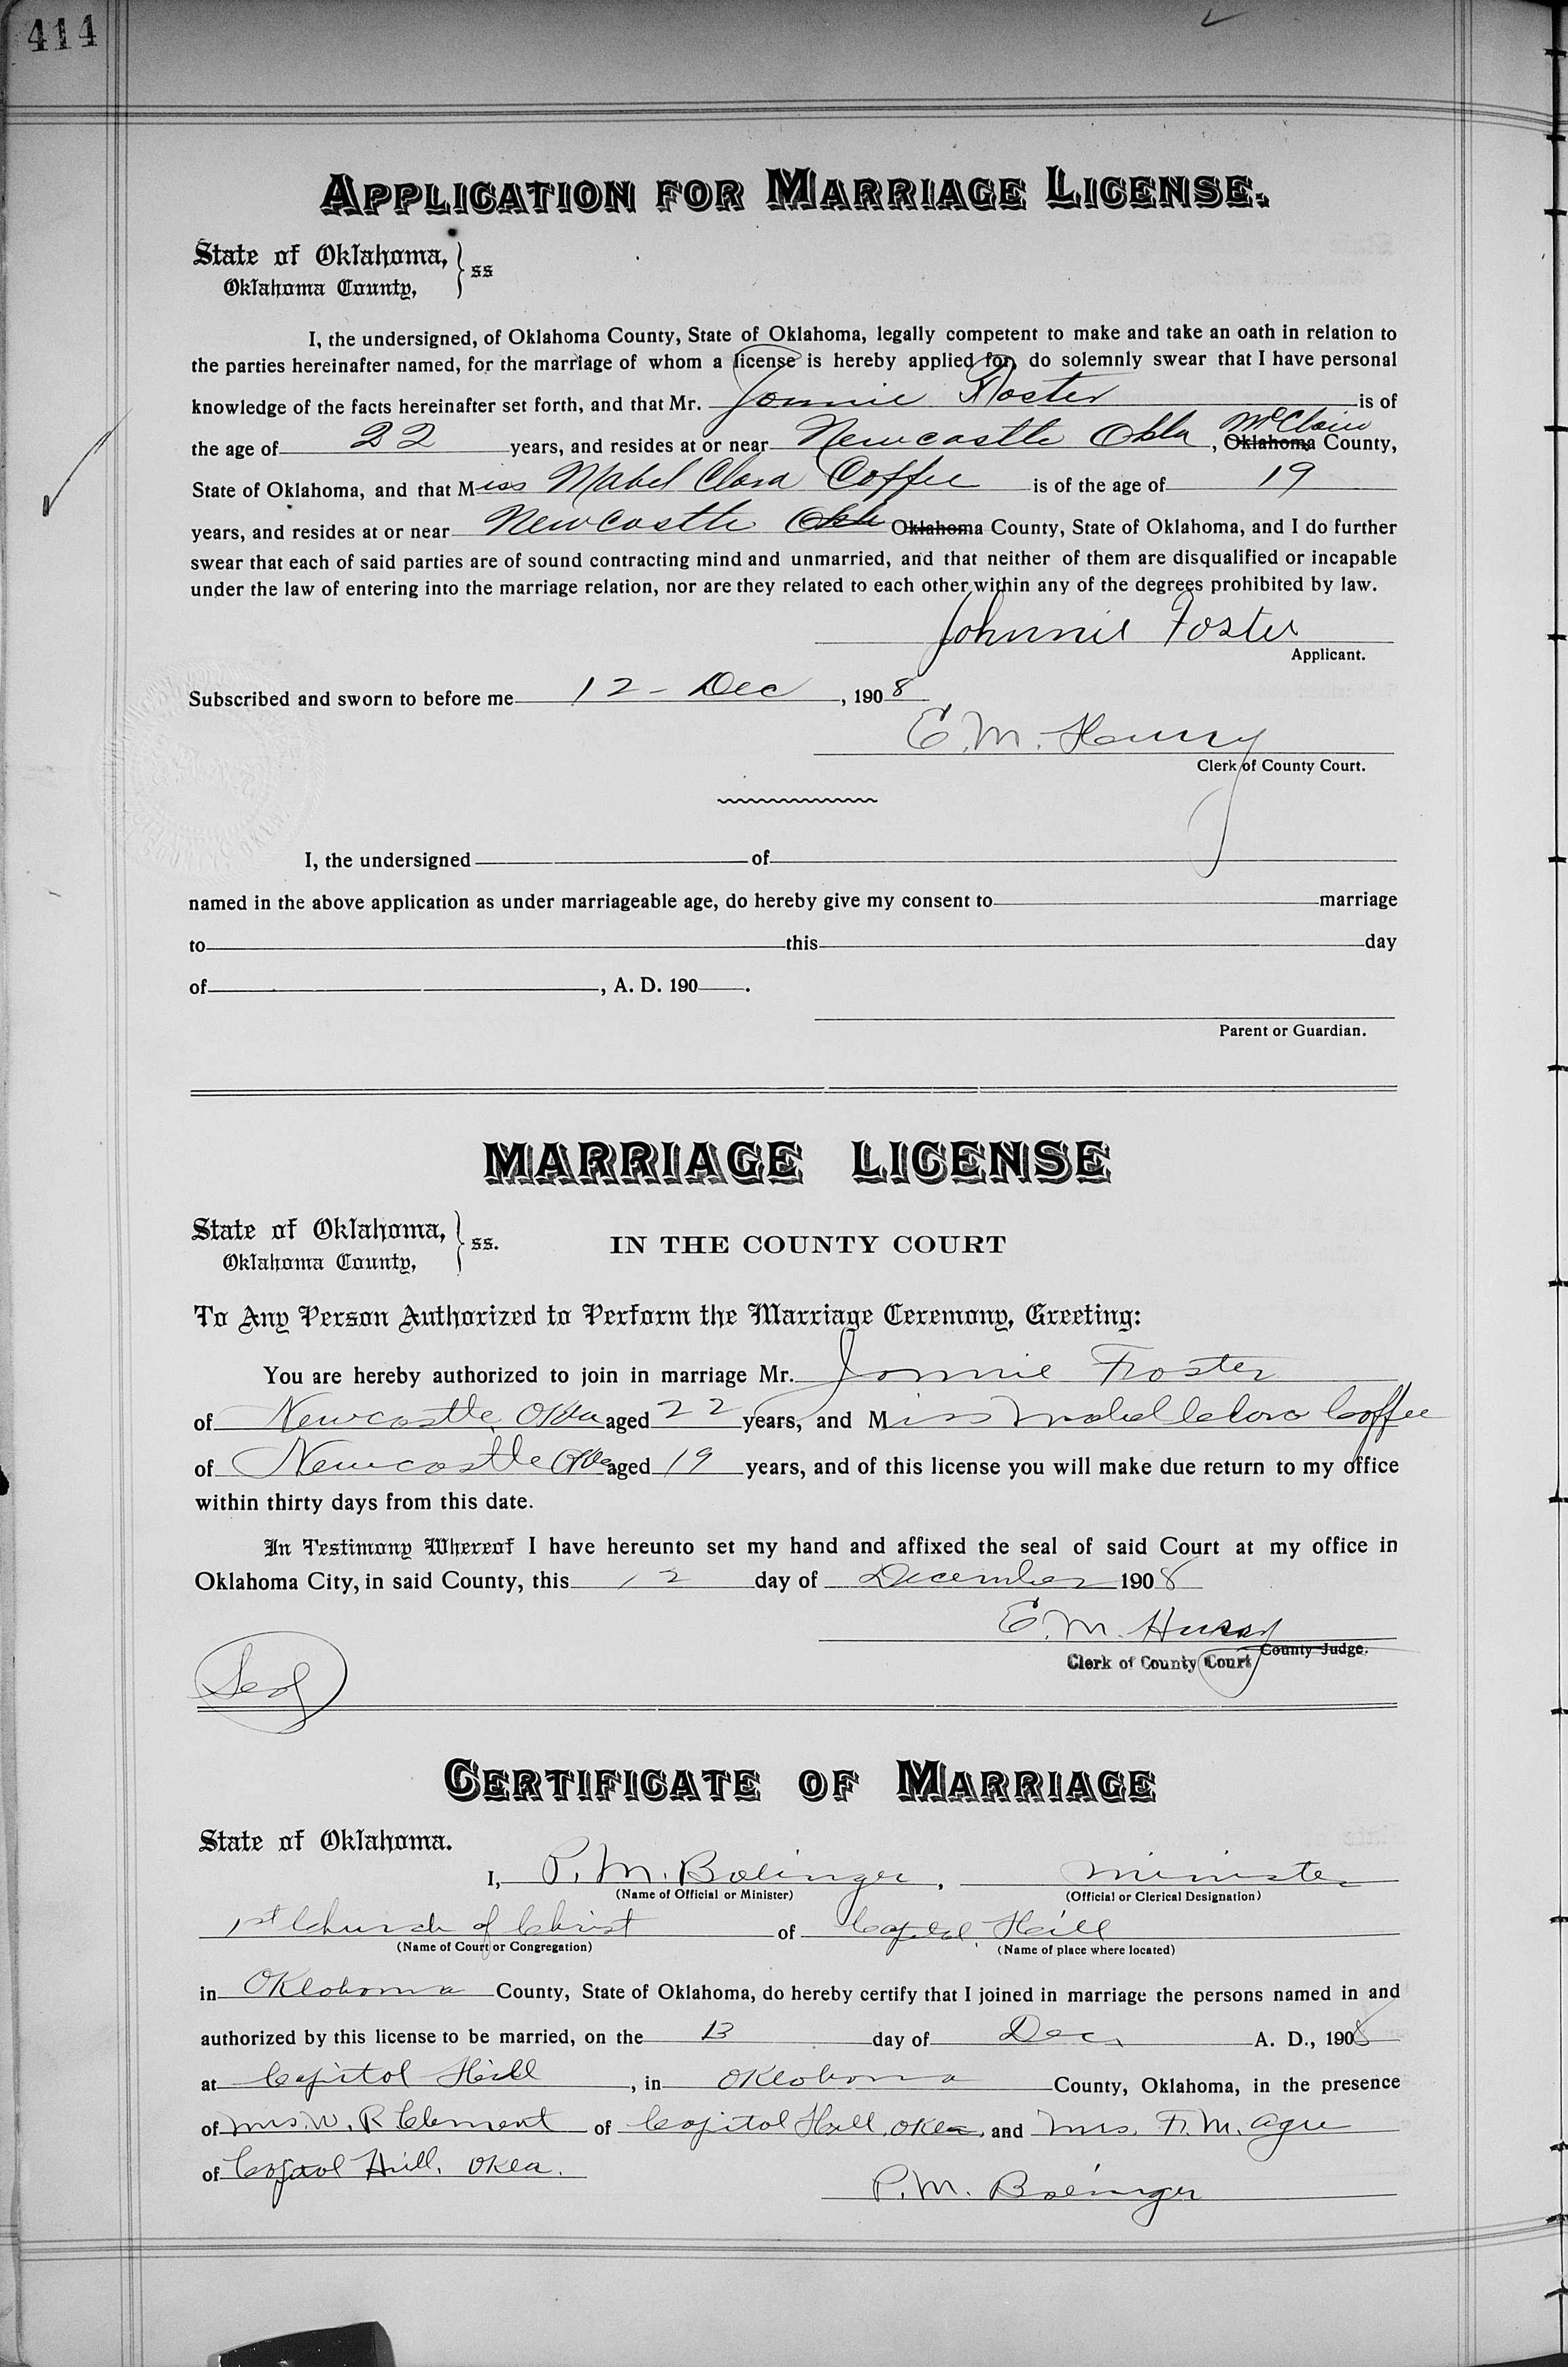 414
APPLICATION FOR MARRIAGE LICENSE.
State of Oklahoma, } ss
Oklahoma County,
I, the undersigned, of Oklahoma County, State of Oklahoma, legally competent to make and take an oath in relation to
the parties hereinafter named, for the marriage of whom a license is hereby applied for, do solemnly swear that I have personal
knowledge of the facts hereinafter set forth, and that Mr. Jonnie Foster is of
the age of 22 years, and resides at or near Newcastle Okla, Oklahoma McClain County,
State of Oklahoma, and that Miss Mabel Clara Coffee is of the age of 19
years, and resides at or near Newcastle Okla Oklahoma County, State of Oklahoma, and I do further
swear that each of said parties are of sound contracting mind and unmarried, and that neither of them are disqualified or incapable
under the law of entering into the marriage relation, nor are they related to each other within any of the degrees prohibited by law.
Johnnie Foster
Applicant.
Subscribed and sworn to before me 12 - Dec, 1908
E. M. Henry
Clerk of County Court.
I, the undersigned of
named in the above application as under marriageable age, do hereby give my consent to marriage
to this day
of , A. D. 190 .
Parent or Guardian.
MARRIAGE LICENSE
State of Oklahoma, } ss. IN THE COUNTY COURT
Oklahoma County,
To Any Person Authorized to Perform the Marriage Ceremony, Greeting:
You are hereby authorized to join in marriage Mr. Jonnie Foster
of Newcastle, Okla aged 22 years, and Miss Mabel Clara Coffee
of Newcastle Okla aged 19 years, and of this license you will make due return to my office
within thirty days from this date.
In Testimony Whereof I have hereunto set my hand and affixed the seal of said Court at my office in
Oklahoma City, in said County, this 12 day of December 1908
E. M. Henry
County Judge.
Clerk of County Court
Seal
CERTIFICATE OF MARRIAGE
State of Oklahoma.
I, P. M. Bolinger, minister
(Name of Official or Minister) (Official or Clerical Designation)
1st Church of Christ of Capitol Hill
(Name of Court or Congregation) (Name of place where located)
in Oklahoma County, State of Oklahoma, do hereby certify that I joined in marriage the persons named in and
authorized by this license to be married, on the 13 day of Dec, A. D., 1908
at Capitol Hill, in Oklahoma County, Oklahoma, in the presence
of Mrs. W. R Clement of Capitol Hill, Okla, and Mrs. F. M. Agee
of Capitol Hill, Okla.
P. M. Bolinger